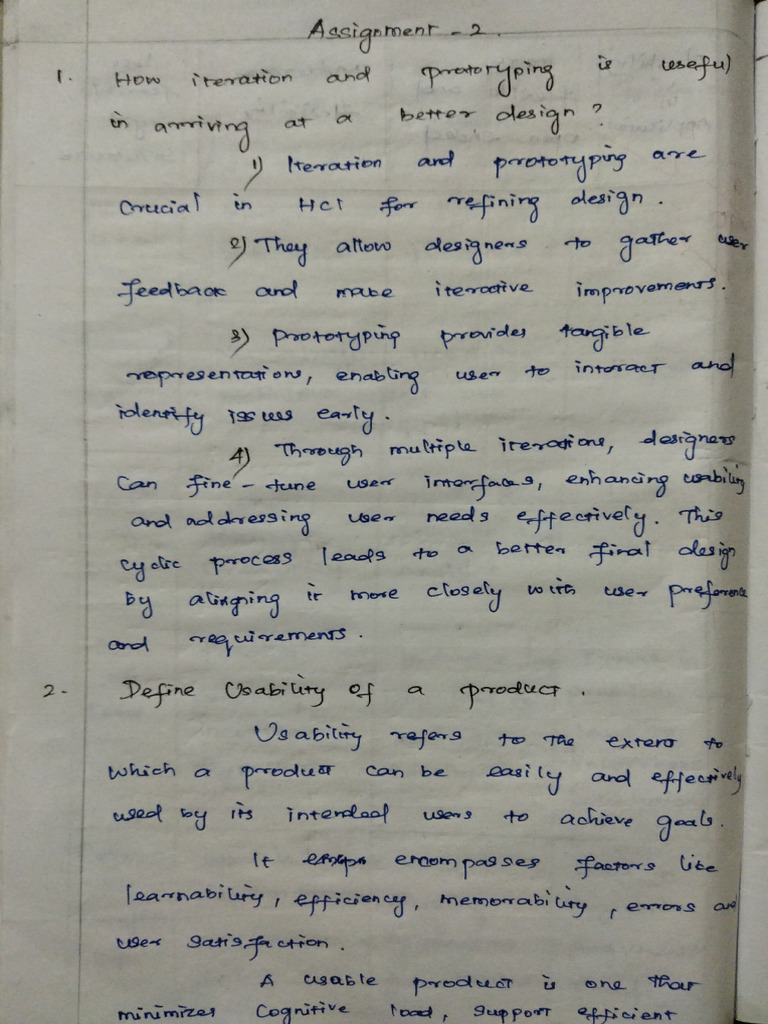 Assignment - 2.
1. How iteration and prototyping is useful
in arriving at a better design?
1) Iteration and prototyping are
crucial in HCI for refining design.
2) They allow designers to gather user
feedback and make iterative improvements.
3) Prototyping provides tangible
representations, enabling user to interact and
identify issues early.
4) Through multiple iterations, designers
can fine-tune user interfaces, enhancing usability
and addressing user needs effectively. This
cyclic process leads to a better final design
by alingning it more closely with user preference
and requirements.
2. Define Usability of a product.
Usability refers to the extent to
which a product can be easily and effectively
used by its intended users to achieve goals.
It encompasses factors like
learnability, efficiency, memorability, errors and
user satisfaction.
A usable product is one that
minimizes cognitive load, support efficient